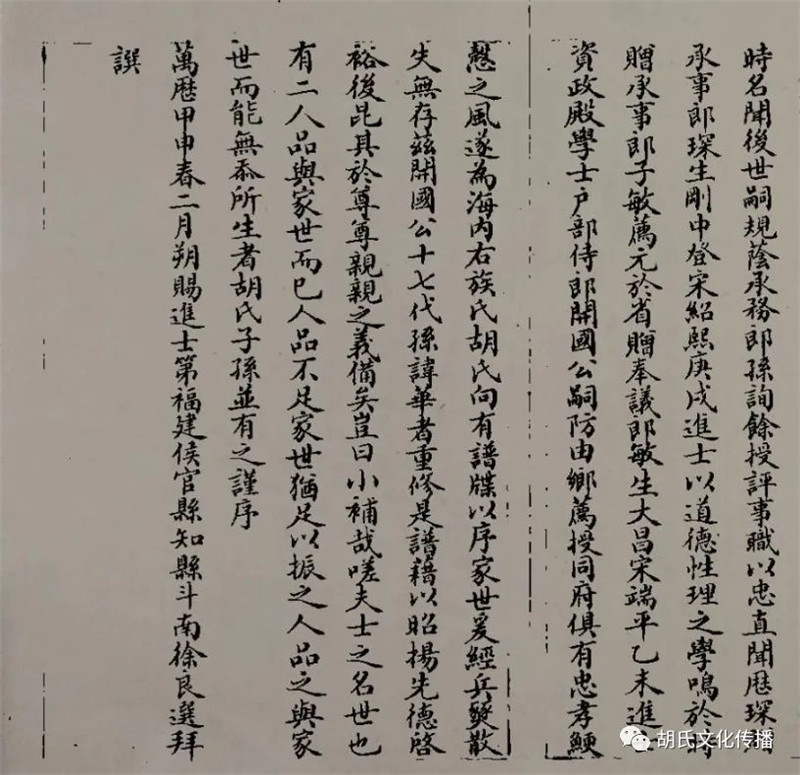 時名聞後世嗣規蔭承務郎孫詢餘授評事職以忠直聞歷琛
承事郎琛生剛中登宋紹熙庚戌進士以道德性理之學鳴於時
贈承事郎子敏薦元於省贈奉議郎敏生大昌宋端平乙未進
資政殿學士戶部侍郎開國公嗣防由鄉薦授同府俱有忠孝鯁
之風遂為海內右族氏胡氏向有譜牒以序家世爰經兵燹散
失無存茲開國公十七代孫諱華者重修是譜藉以昭揚先德啓
裕後昆其於尊尊親親之義備矣豈曰小補哉嗟夫士之名世也
有二人品與家世而已人品不足家世猶足以振之人品之與家
世而能無忝所生者胡氏子孫並有之謹序
萬歷甲申春二月朔賜進士第福建侯官縣知縣斗南徐良選拜
譔
胡氏文化传播